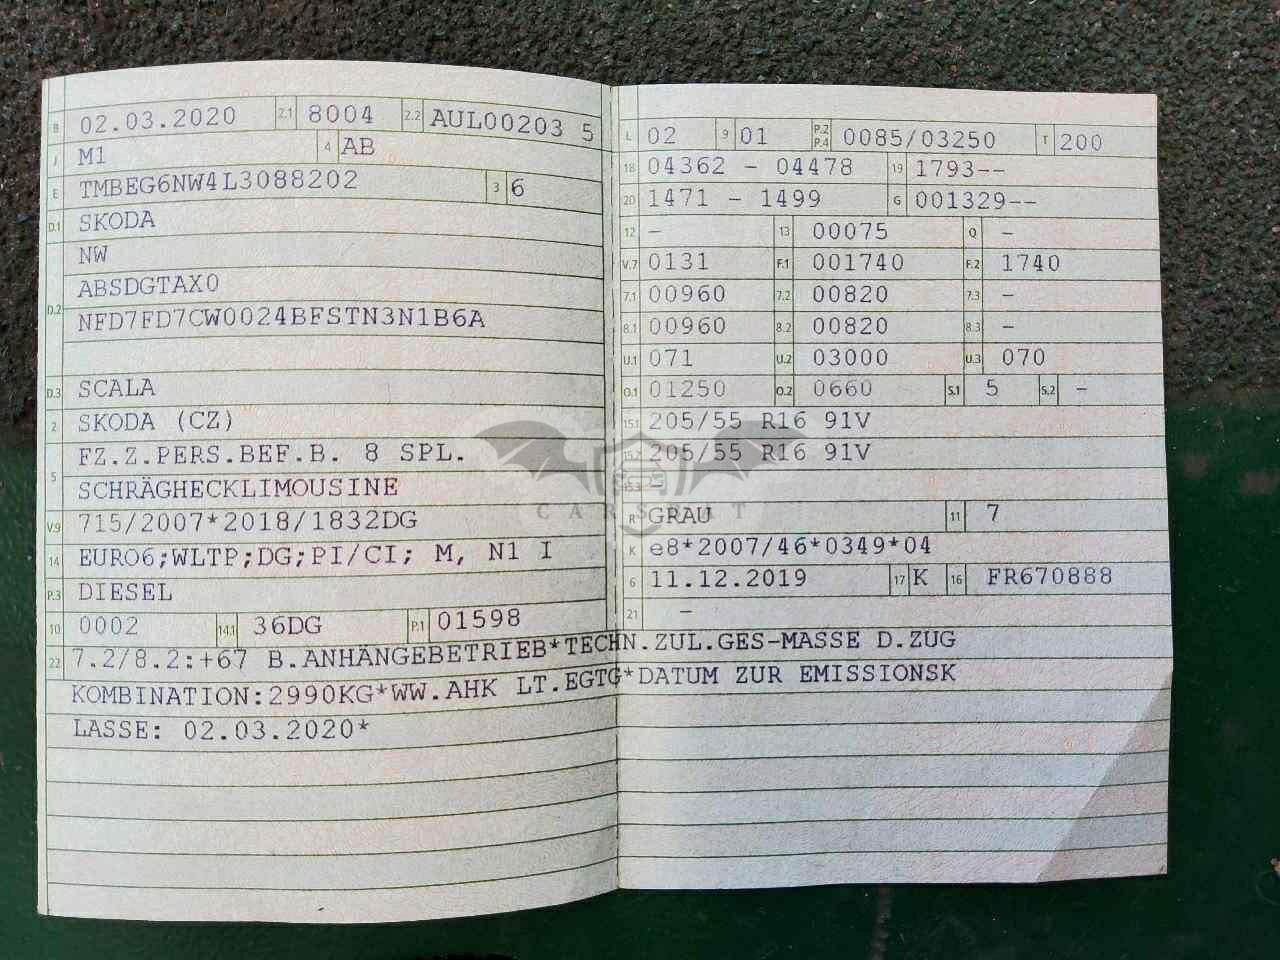 B 02.03.2020 2.1 8004 2.2 AUL00203 5
J M1 4 AB
E TMBEG6NW4L3088202 3 6
D.1 SKODA
NW
D.2 ABSDGTAX0
NFD7FD7CW0024BFSTN3N1B6A
D.3 SCALA
2 SKODA (CZ)
5 FZ.Z.PERS.BEF.B. 8 SPL.
SCHRÄGHECKLIMOUSINE
V.9 715/2007*2018/1832DG
14 EURO6;WLTP;DG;PI/CI; M, N1 I
P.3 DIESEL
10 0002 14.1 36DG P.1 01598
L 02 9 01 P.2 P.4 0085/03250 T 200
18 04362 - 04478 19 1793--
20 1471 - 1499 G 001329--
12 - 13 00075 Q -
V.7 0131 F.1 001740 F.2 1740
7.1 00960 7.2 00820 7.3 -
8.1 00960 8.2 00820 8.3 -
U.1 071 U.2 03000 U.3 070
O.1 01250 O.2 0660 S.1 5 S.2 -
15.1 205/55 R16 91V
15.2 205/55 R16 91V
15.3 -
CARSBAT
R GRAU 11 7
K e8*2007/46*0349*04
6 11.12.2019 17 K 16 FR670888
21 -
22 7.2/8.2:+67 B.ANHÄNGEBETRIEB*TECHN.ZUL.GES-MASSE D.ZUG
KOMBINATION:2990KG*WW.AHK LT.EGTG*DATUM ZUR EMISSIONSK
LASSE: 02.03.2020*